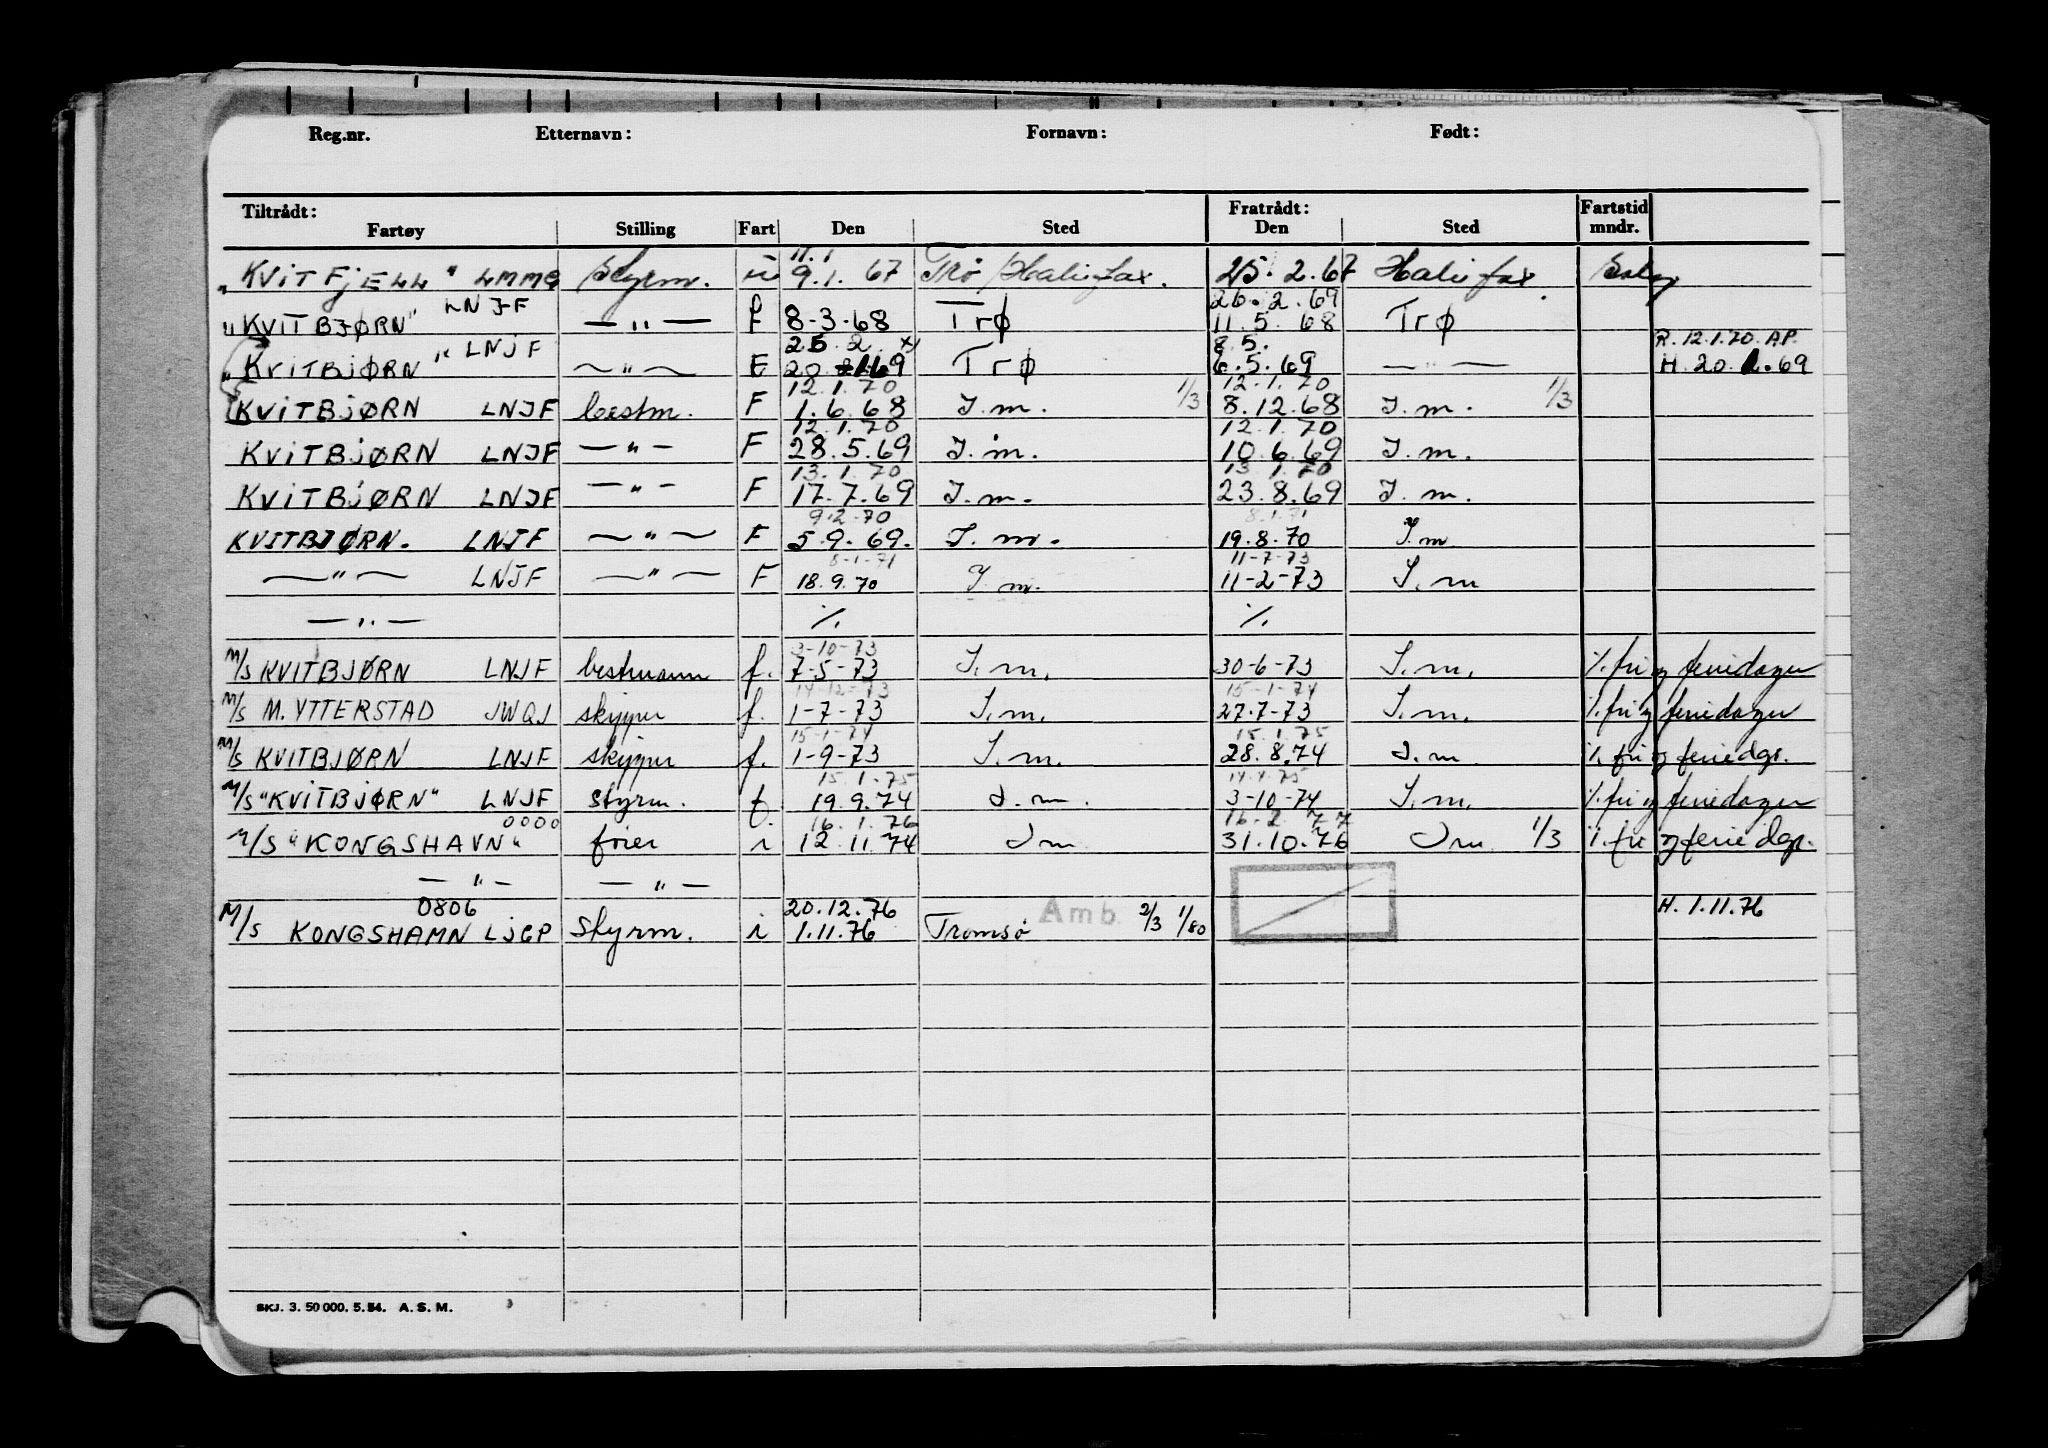 Reg.nr. Etternavn: Fornavn: Født:
Tiltrådt: Fratrådt: Fartstid
Fartøy Stilling Fart Den Sted Den Sted mndr.
11.1
"KVITFJELL" LMMG styrm. u 9.1. 67 Trø/Halifax. 25. 2. 67 Halifax
LNJF 26. 2. 69
"KVITBJØRN" — " — F 8-3-68 Trø 11. 5. 68 Trø
25. 2. x) 8.5. R. 12.1.70. AP.
"KVITBJØRN" LNJF — " — F 20. 1 69 Trø 6.5.69 — " — H. 20. 1. 69
12.1.70 12.1.70
KVITBJØRN LNJF bestm. F 1.6.68 I.m. 1/3 8.12.68 I.m. 1/3
12.1.70 12.1.70
KVITBJØRN LNJF — " — F 28.5.69 I.m. 10.6.69 I.m.
13.1.70 13.1.70
KVITBJØRN LNJF — " — F 17.7.69 I.m. 23.8.69 I.m.
9.2.70 8.1.71
KVITBJØRN. LNJF — " — F 5.9.69. I.m. 19.8.70 I.m.
8-1-71 11-7-73
— " — LNJF — " — F 18.9.70 I.m. 11-2-73 I.m
— " — ./. ./.
3-10-73
M/S KVITBJØRN LNJF bestmann f. 7-5-73 I.m. 30-6-73 I.m. ./. fri og feriedager
14-12-73 15-1-74
M/S M. YTTERSTAD JWQJ skipper f. 1-7-73 I.m. 27.7-73 I.m. ./. fri og feriedager
15-1-74 15.1.75
M/S KVITBJØRN LNJF skipper f. 1-9-73 I.m. 28.8.74 I.m ./. fri og feriedgr.
15.1.75 14.4.75
M/S "KVITBJØRN" LNJF styrm. f. 19.9.74 I.m. 3-10-74 I.m. ./. fri og feriedager
0000 16.1.76 16.2.77
M/S "KONGSHAVN" fører i 12.11.74 Im 31.10.76 Im 1/3 ./. fri og feriedgr.
— " — — " —
0806 20.12.76 H. 1.11.76
M/S KONGSHAMN LJGP Styrm. i 1.11.76 Tromsø Amb. 2/3 1/80
SKJ. 3. 50 000. 5. 54. A. S. M.